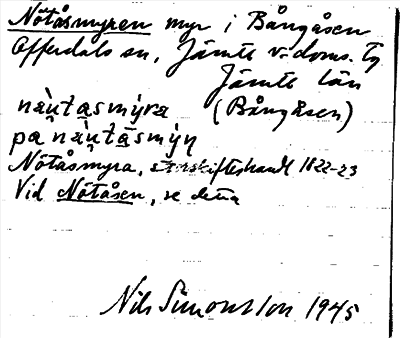 Nötåsmyren myr i Bångåsen
Offerdals sn, Jämtl. v. doms. tg
Jämtl län
nàu̩tasmýra (Bångåsen)
pa nàu̩tåsmýn̩
Nötåsmyra, storskifteshandl 1822-23
Vid Nötåsen, se detta
Nils Simonsson 1945